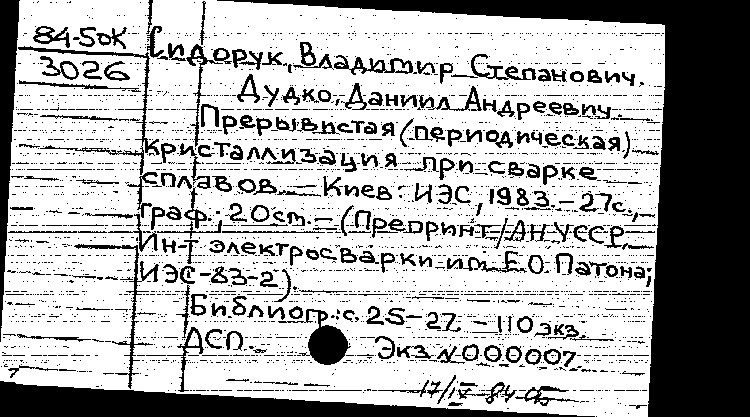 84-5ОК
3026
Сидорук, Владимир Степанович.
Дудко, Даниил Андреевич.
Прерывистая (периодическая)
кристаллизация при сварке
сплавов. — Киев: ИЭС, 1983. — 27с.,
граф.; 20ст. — (Препринт / АН УССР,
Ин-т электросварки им. Е.О. Патона;
ИЭС-83-2).
Библиогр.: с. 25-27. — 110 экз.
ДСП.
Экз. N 000007.
17/IV 84